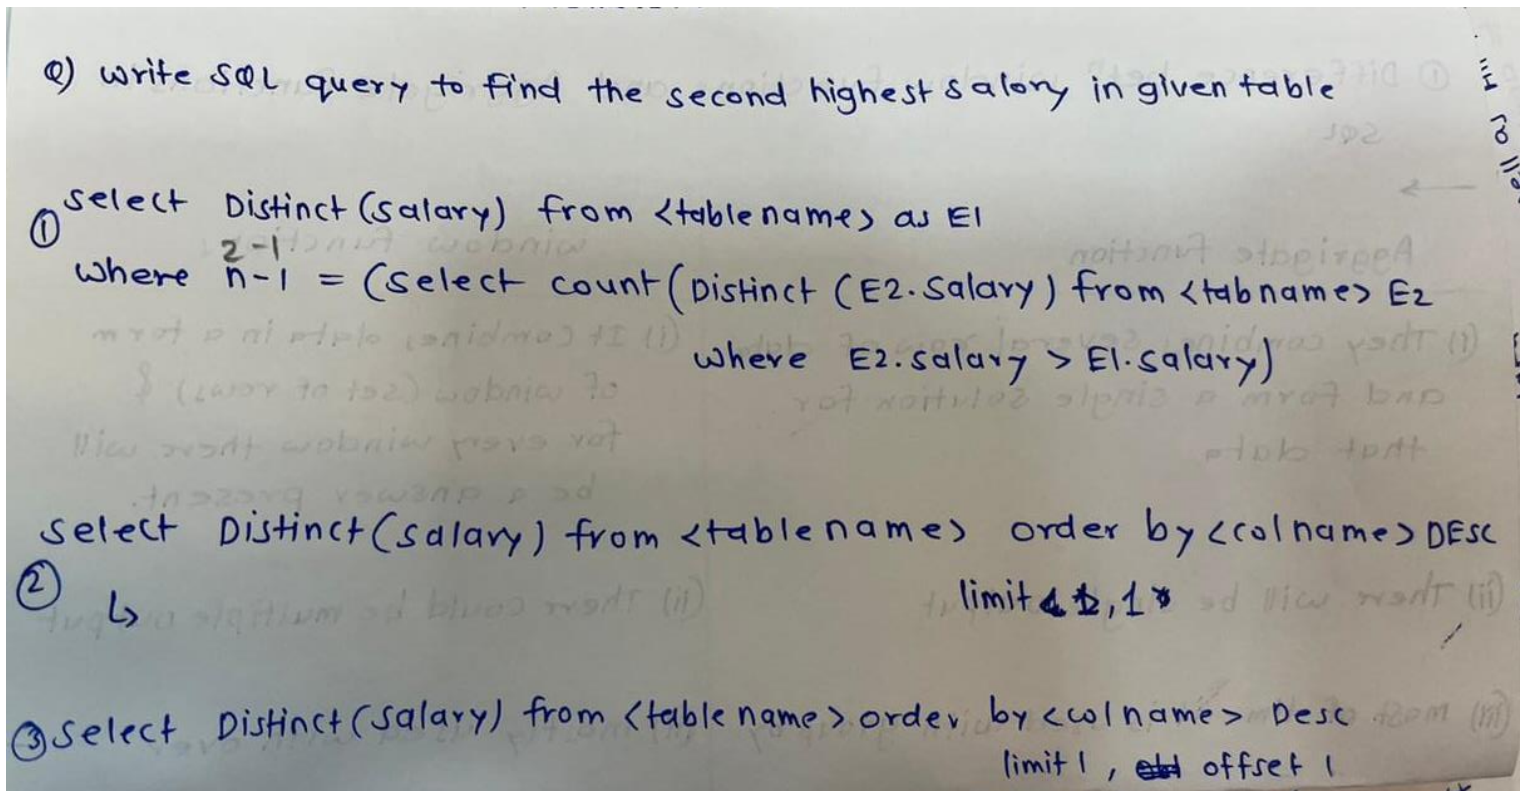 Q) write SQL query to find the second highest salary in given table
① select Distinct (salary) from <tablename> as E1
2-1
where n-1 = (select count (Distinct (E2.salary) from <tabname> E2
where E2.salary > E1.salary)
select Distinct (salary) from <tablename> order by <colname> DESC
②
↳ limit 1, 1
③ select Distinct (salary) from <table name> order by <colname> Desc
limit 1, offset 1